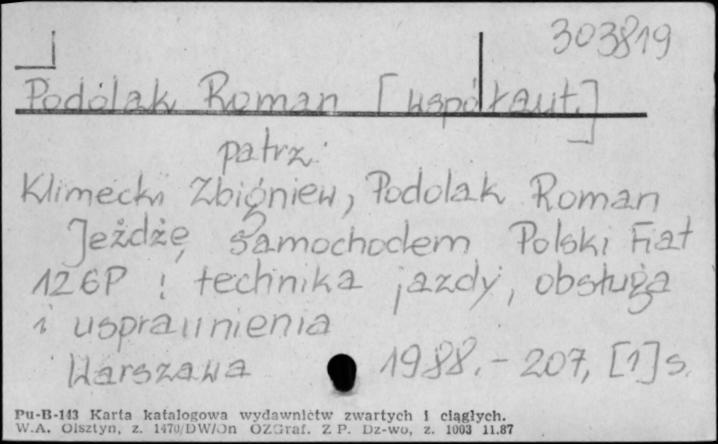 303819
Podolak Roman [współaut.]
patrz:
Klimecki Zbigniew, Podolak Roman
Jeżdżę samochodem Polski Fiat
126P : technika jazdy, obsługa
i usprawnienia
Warszawa 1988. - 207, [1] s.
Pu-B-143 Karta katalogowa wydawnictw zwartych i ciągłych.
W.A. Olsztyn, z. 1470/DW/On OZGraf. Z P. Dz-wo, z. 1003 11.87